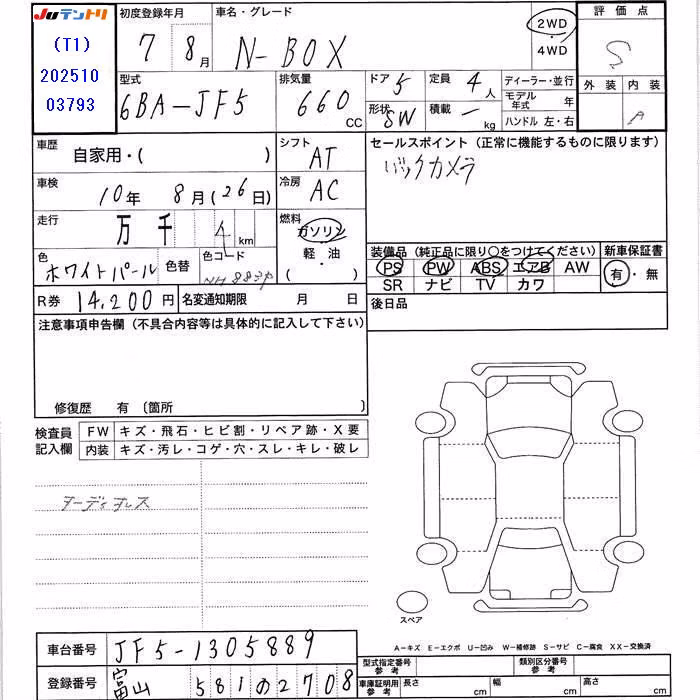 JUテントリ
(T1)
202510
03793
初度登録年月
7 8月
車名・グレード
N-BOX
2WD
・
4WD
評価点
S
外装 内装
A
型式
6BA-JF5
排気量
660 CC
ドア 5
形状 SW
定員 4人
積載 ー kg
ディーラー・並行
モデル年式 年
ハンドル 左・右
車歴
自家用・( )
シフト
AT
セールスポイント (正常に機能するものに限ります)
バックカメラ
車検
10年 8月(26日)
冷房
AC
走行
万 千 4 km
燃料
ガソリン
・
軽・油
( )
色
ホワイトパール
色替
色コード
装備品 (純正品に限り〇をつけてください)
PS PW ABS エアB AW
SR ナビ TV カワ
新車保証書
有・無
R券 14,200円
名変通知期限 月 日
後日品
注意事項申告欄 (不具合内容等は具体的に記入して下さい)
修復歴 有 〔箇所 〕
検査員
記入欄
FW キズ・飛石・ヒビ割・リペア跡・X要
内装 キズ・汚レ・コゲ・穴・スレ・キレ・破レ
オーディオレス
スペア
A-キズ E-エクボ U-凹み W-補修跡 S-サビ C-腐食 XX-交換済
車台番号
JF5-1305889
登録番号
富山 581 の 2708
型式指定番号
参考
類別区分番号
参考
車庫証明用
参考
長さ cm 幅 cm 高さ cm